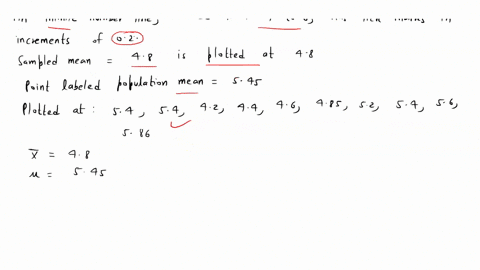 increments of 0.2.
Sampled mean = 4.8 is plotted at 4.8
Point labeled population mean = 5.45
Plotted at : 5.4, 5.4, 4.2, 4.4, 4.6, 4.85, 5.2, 5.4, 5.6,
5.86
x̅ = 4.8
μ = 5.45